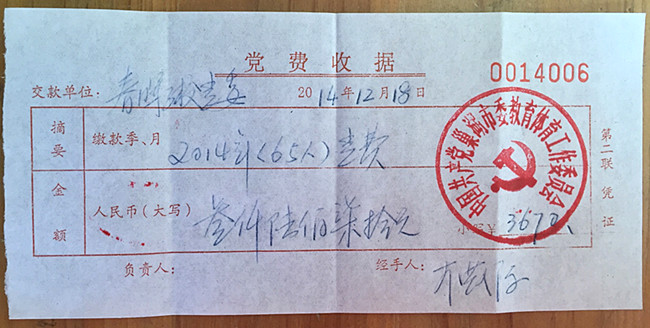 党费收据
0014006
交款单位：春晖 党委 2014年12月18日
摘要 缴款季、月 2014年(65人)党费
金额 人民币(大写) 叁仟陆佰柒拾元 小写¥ 3670
负责人： 经手人：
第二联 凭证
中国共产党巢湖市委教育体育工作委员会